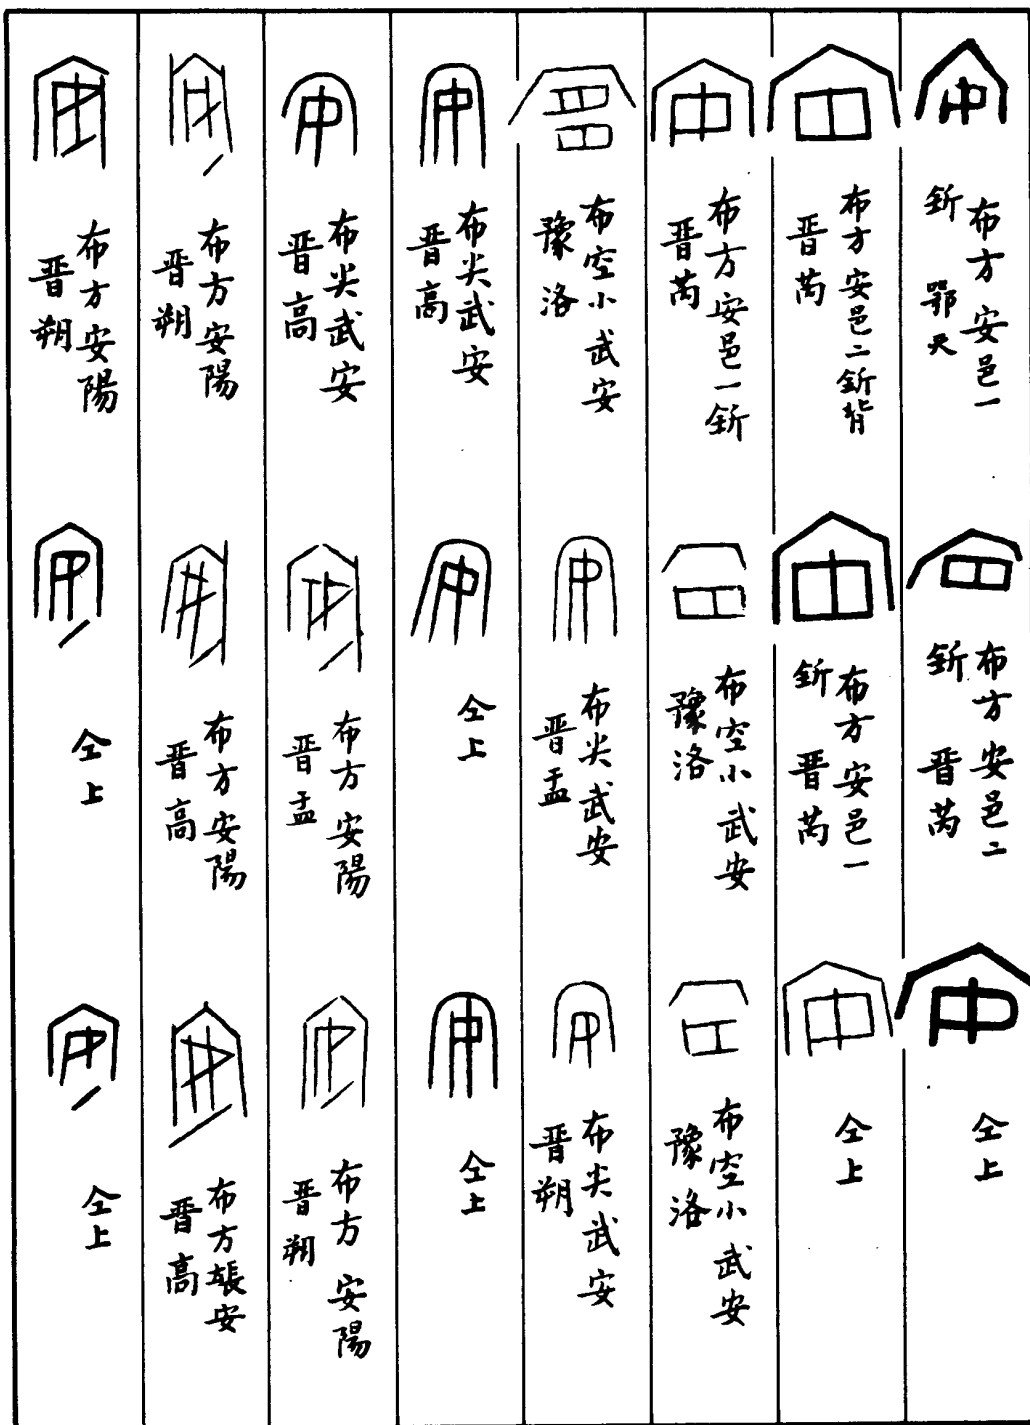 布方安邑一
釿 鄂天
布方安邑二
釿 晋芮
仝上
布方安邑二釿背
晋芮
布方安邑一
釿 晋芮
仝上
布方安邑一釿
晋芮
布空小武安
豫洛
布空小武安
豫洛
布空小武安
豫洛
布尖武安
晋盂
布尖武安
晋朔
布尖武安
晋高
仝上
仝上
布尖武安
晋高
布方安陽
晋盂
布方安陽
晋朔
布方安陽
晋朔
布方安陽
晋高
布方安
晋高
布方安陽
晋朔
仝上
仝上